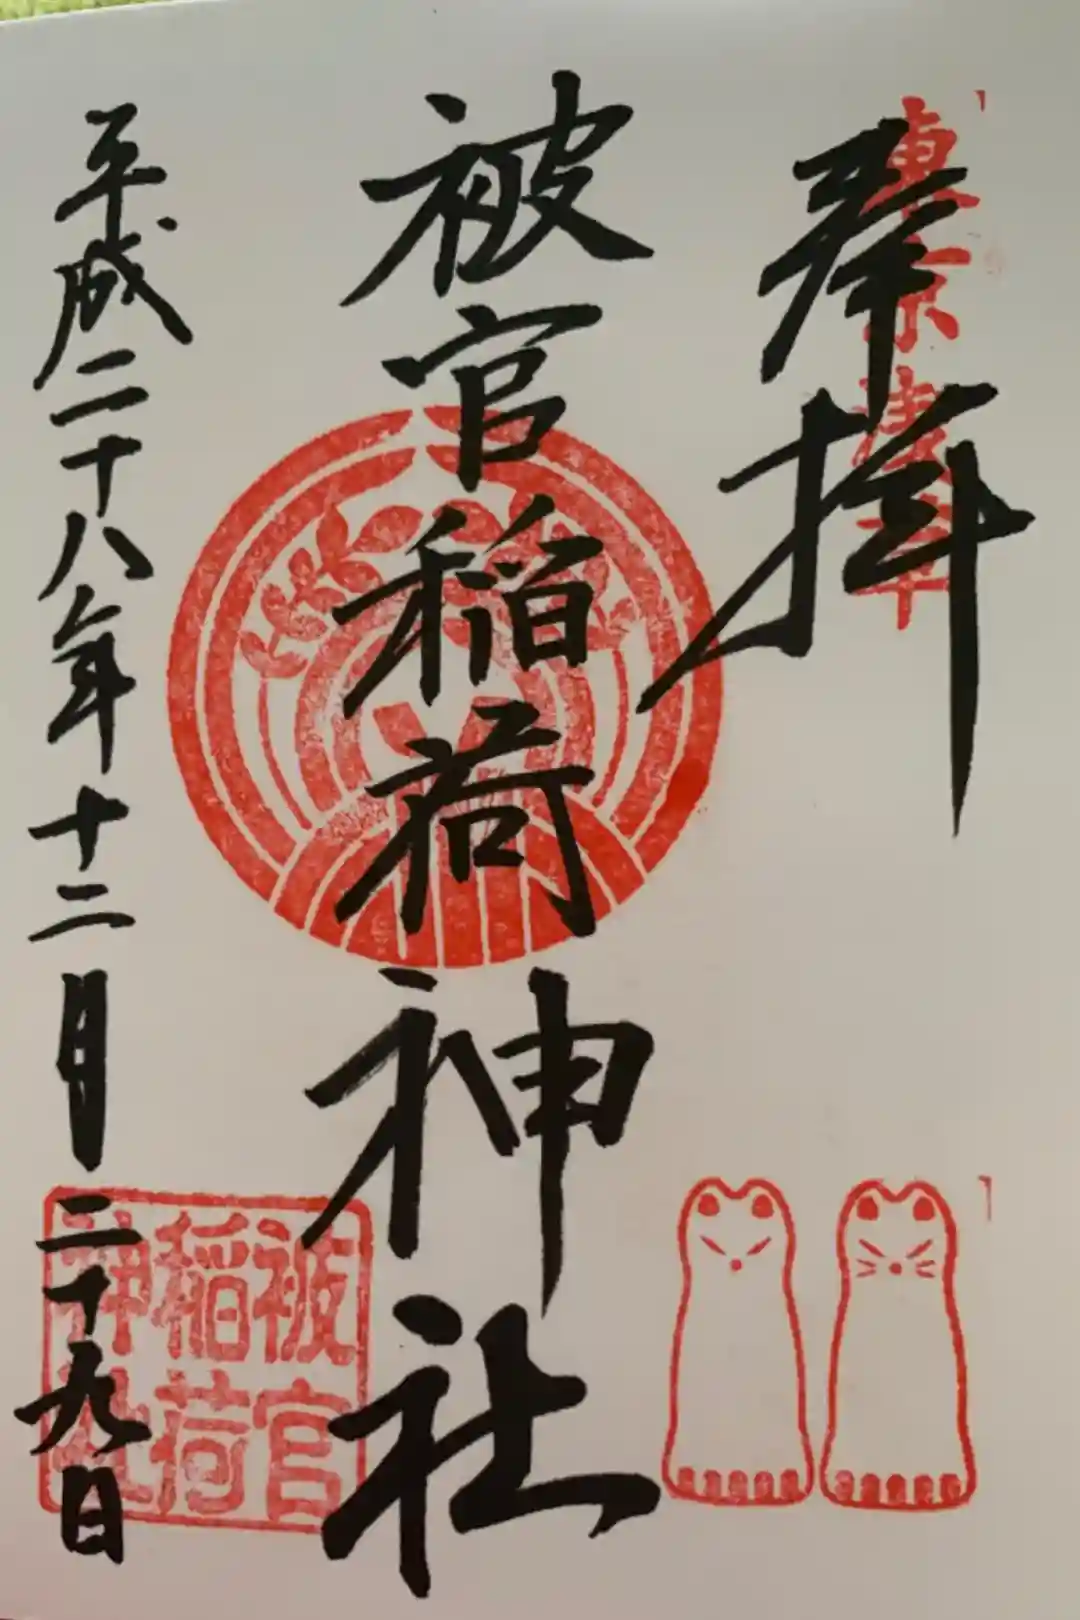 奉拝
東京浅草
被官稲荷神社
被官
稲荷
神社
平成二十八年十二月二十九日